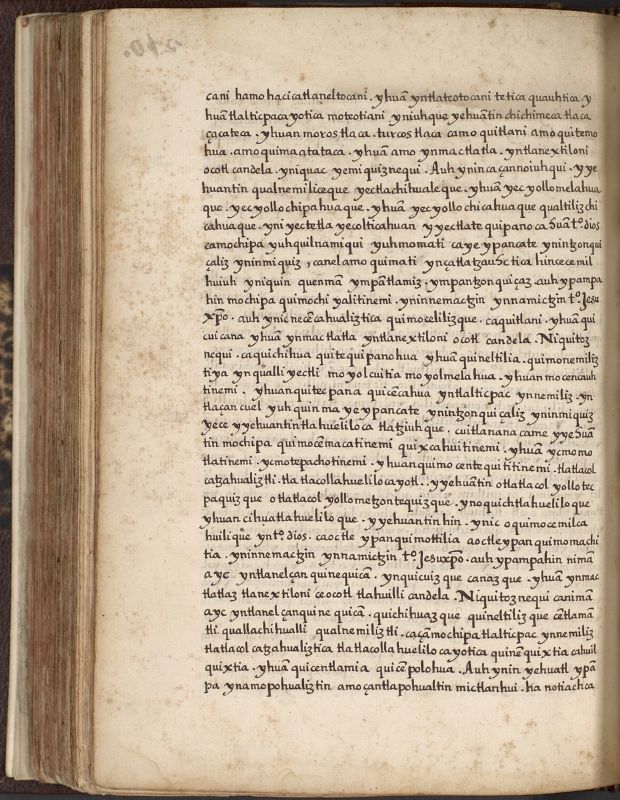 cani hamo hacicatlaneltocani. yhuã yntlateotocani tetica quauhtica. y
huã tlalticpacayotica moteotiani yniuhque yehuãtin chichimeca tlaca
çacateca. yhuan moros tlaca. turcos tlaca camo quitlani amo quitemo
hua. amo quimaatataca. yhuã amo ynmactlatla. yntlanextiloni
ocotl candela. yniquac yemiquiznequi. Auh ynin ca çannoiuhqui. yye
huantin qualnemiliceque yectlachihualeque. yhuã yec yollomelahua
que. yec yollochipahuaque. yhuã yec yollochicahuaque qualtilizchi
cahuaque. yniyectetla yecolticahuan yyectlatequipanocahuã tº. dios
camochipa yuhquilnamiqui yuhmomati caye ypancate ynintzonqui
çaliz yninmiquiz, canel amo quimati ynçatlatzauhctica hincecemil
huiuh yniquin quenmã ympãtlamiz. ympantzonquiçaz. auh ypampa
hin mochipa quimochiyalitinemi. yninnemactzin ynnamictzin tº. Jesu
xpõ. auh ynic necẽcahualiztica quimocelilizque. caquitlani. yhuã qui
cuicana yhuã ynmactlatla yntlanextiloni ocotl candela. Niquitoz
nequi. caquichihua quitequipanohua yhuã quineltilia. quimonemiliz
tiya ynqualli yectli moyolcuitia moyolmelahua. yhuan mocencauh
tinemi. yhuan quitecpana quicẽcahua yntlalticpac ynnemiliz. yn
tlaçan cuel yuhquinma ye ypancate ynintzonquiçaliz yninmiquiz
yece yyehuantin tlahueliloca tlatziuhque. cuitlananacame yyehuã
tin mochipa quimocẽmacatinemi quixcahuitinemi. yhuã ycmomo
tlatinemi. ycmotepachotinemi. yhuan quimocentequititinemi. tlatlacol
catzahualiztli. tlatlacollahuelilocayotl. yyehuãtin otlatlacol yollotec
paquizque otlatlacol yollometzontequizque. ynoquichtlahueliloque
yhuan cihuatlahueliloque. yyehuantin hin. ynic oquimocemilca
huilique yntº. dios. caoctle ypanquimottilia aoctle ypan quimomachi
tia. yninnemactzin ynnamictzin tº. Jesuxpõ. auh ypampahin nimã
ayc yntlanelçan quinequicã. ynquicuizque canazque. yhuã ynmac
tlatlaz tlanextiloni ceocotl tlahuilli candela. Niquitoznequi canimã
ayc yntlanelçanquinequicã. quichihuazque quineltilizque cẽtlamã
tli quallachihualli qualnemiliztli. caçãmochipa tlalticpac ynnemiliz
tlatlacol catzahualiztica tlatlacollahuelilocayotica quinẽquixtia cahuil
quixtia. yhuã quicentlamia quicẽpolohua. Auh ynin yehuatl ypã
pa ynamopohualiztin amo çantlapohualtin mictlanhui. ha notiachca